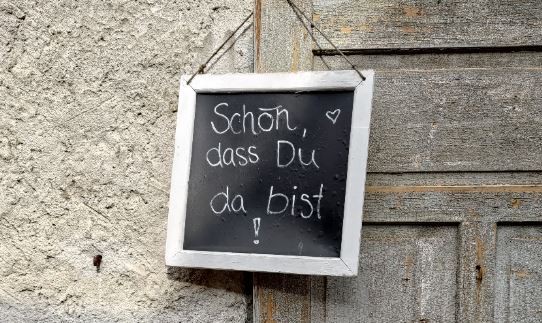 Schön, ♡
dass Du
da bist
!